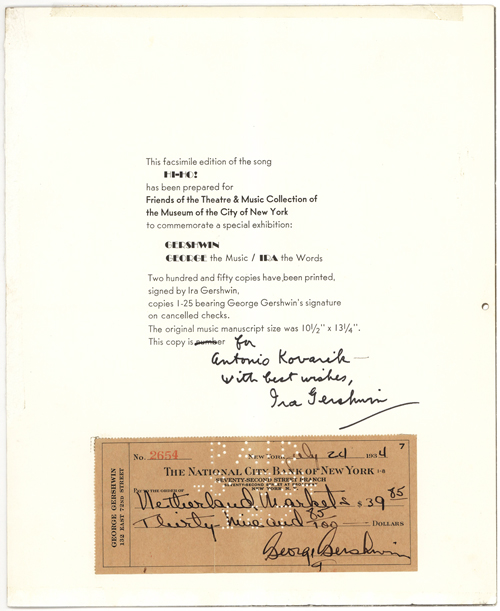 This facsimile edition of the song
HI-HO!
has been prepared for
Friends of the Theatre & Music Collection of
the Museum of the City of New York
to commemorate a special exhibition:
GERSHWIN
GEORGE the Music / IRA the Words
Two hundred and fifty copies have been printed,
signed by Ira Gershwin,
copies 1-25 bearing George Gershwin's signature
on cancelled checks.
The original music manuscript size was 10½" x 13¼".
This copy is number for
Antonio Kovarik —
with best wishes,
Ira Gershwin
7
No. 2654 NEW YORK, July 24 1934
THE NATIONAL CITY BANK OF NEW YORK 1-8
SEVENTY-SECOND STREET BRANCH
PAY TO THE ORDER OF Netherland Markets $39 85
Thirty nine and 85/100 DOLLARS
George Gershwin
GEORGE GERSHWIN
132 EAST 72ND STREET